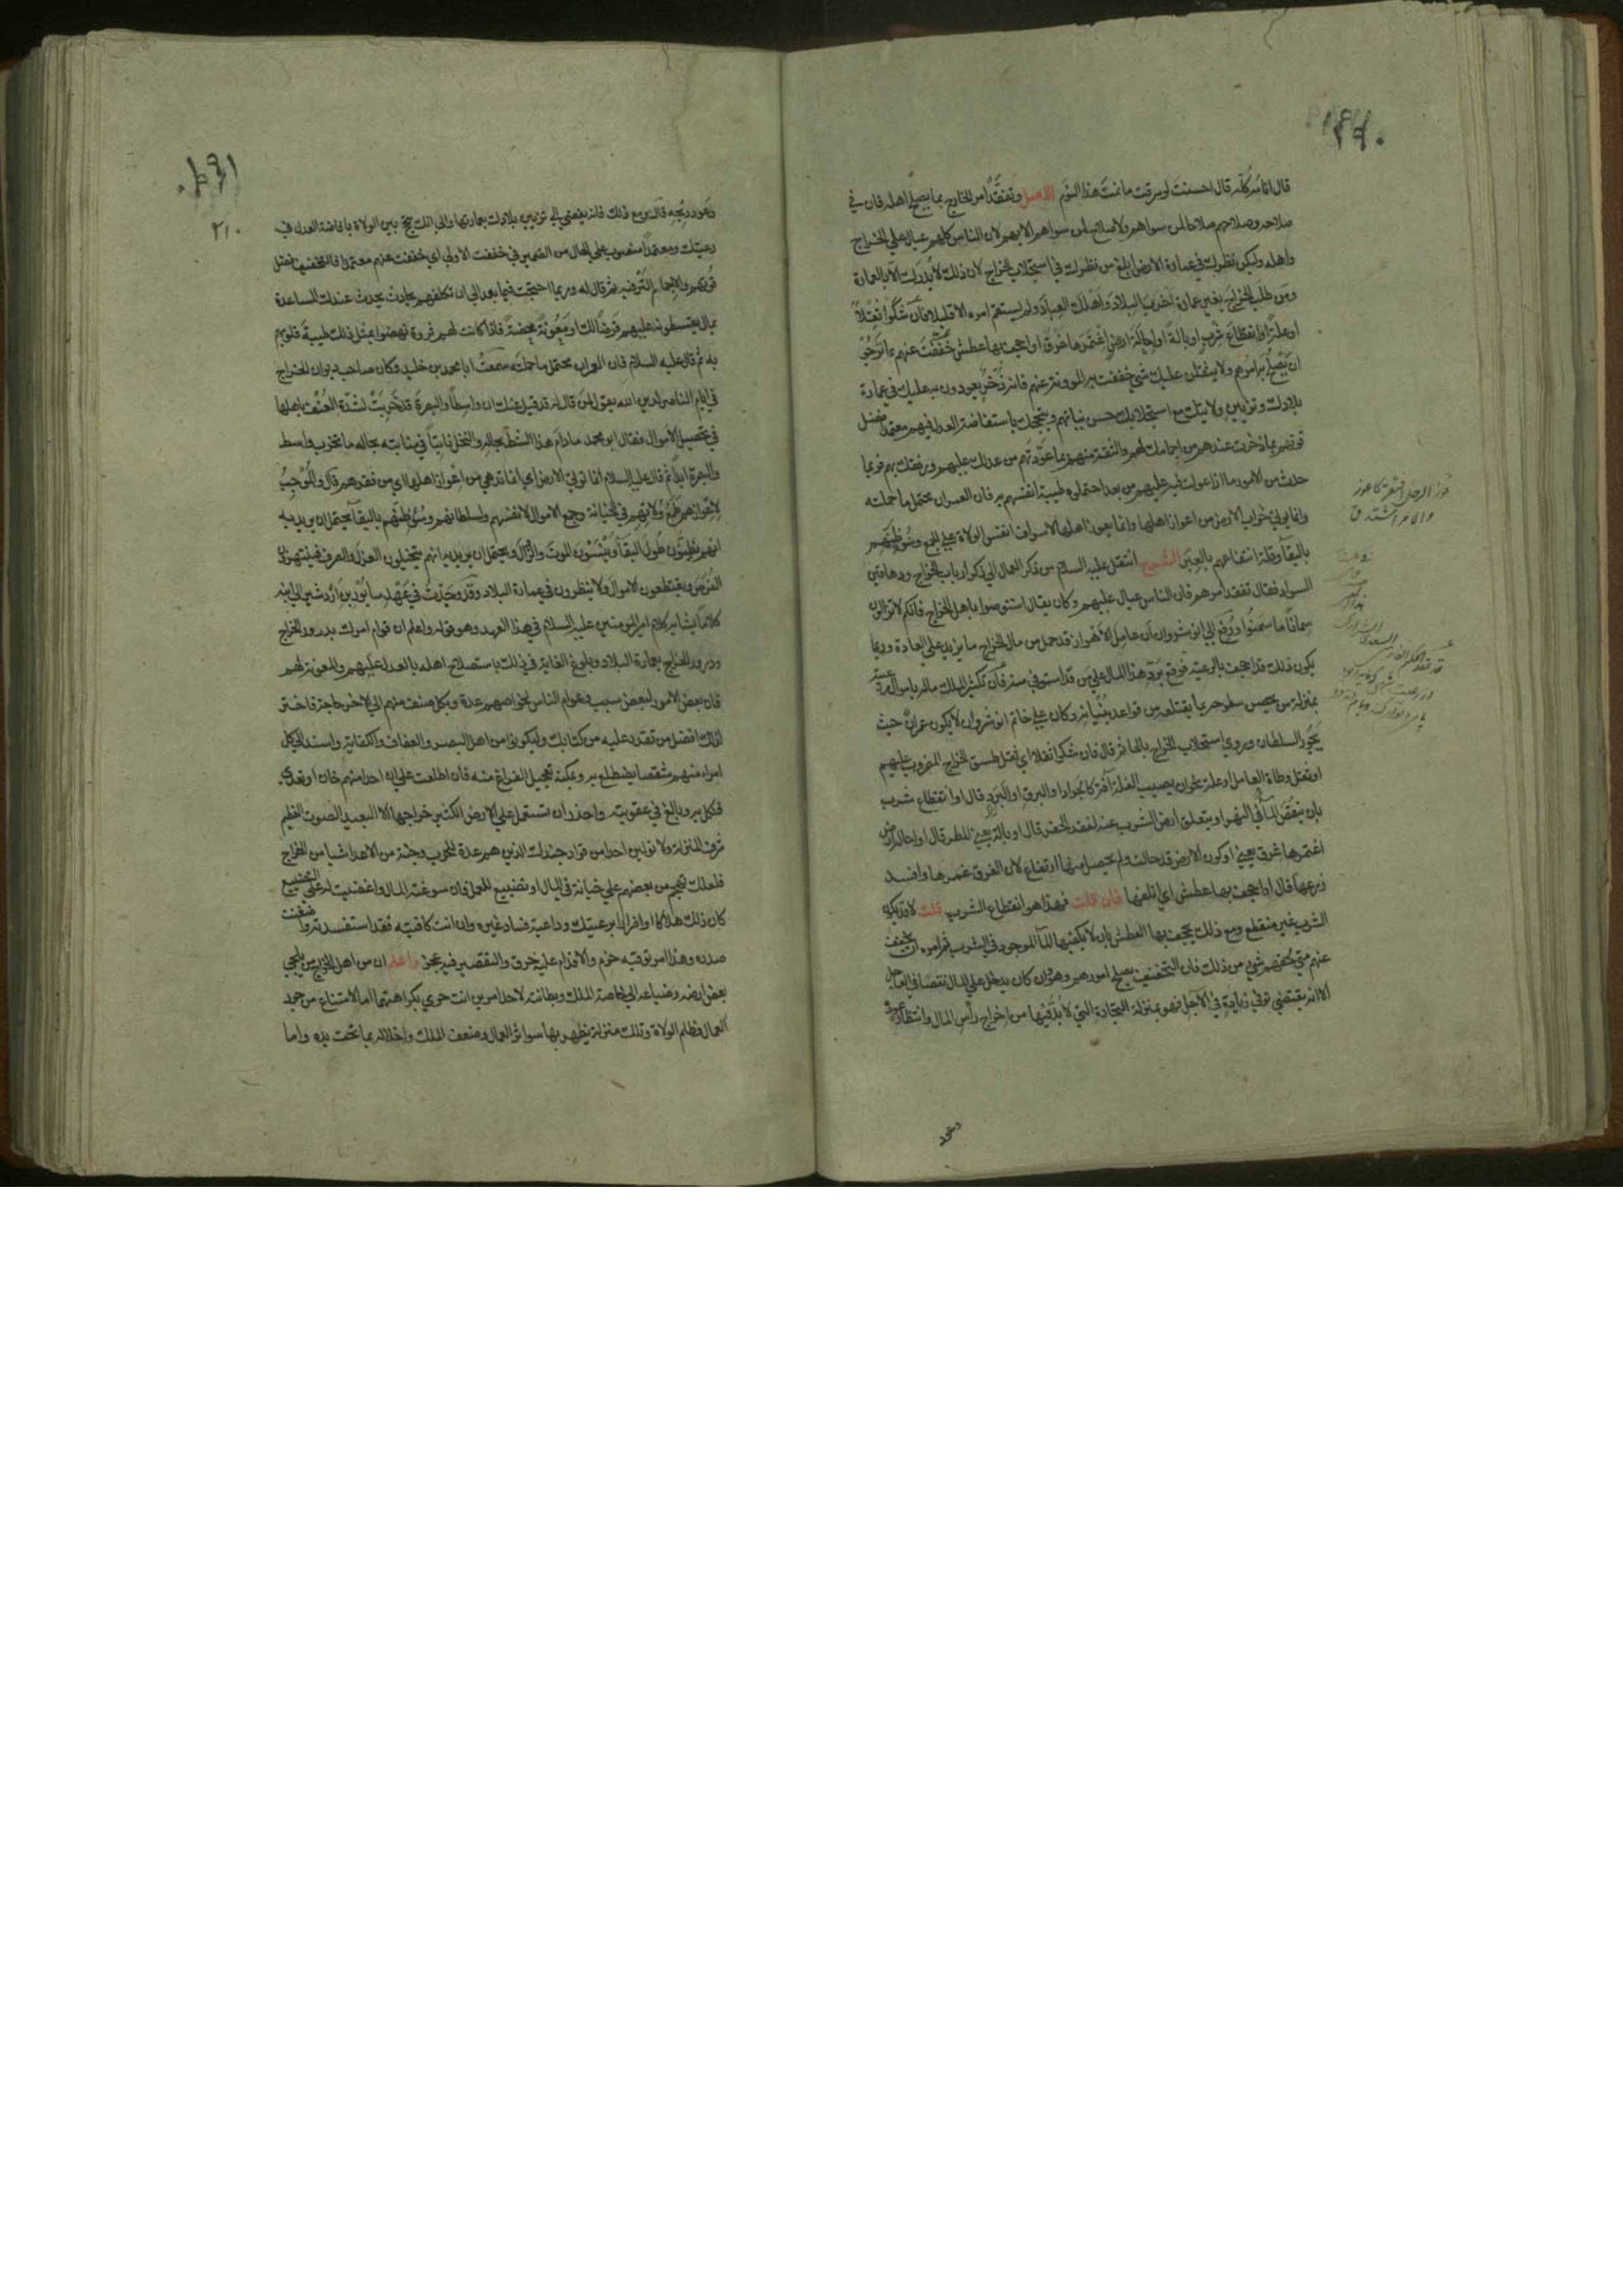 ١٩٠
قال انا مبركله قال احسنت لو سرقت ما نمت هذا النوم الاصل وتفقد امر الخراج بما يصلح اهله فان في
صلاحه وصلاحهم صلاحا لمن سواهم ولا صلاح لمن سواهم الا بهم لان الناس كلهم عيال علي الخراج
واهله وليكن نظرك في عمارة الارض ابلغ من نظرك في استجلاب الخراج لان ذلك لا يدرك الا بالعمارة
ومن طلب الخراج بغير عمارة اخرب البلاد واهلك العباد ولم يستقم امره الا قليلا فان شكوا ثقلا
او علة او انقطاع شرب او بالة او احالة ارض اغتمرها غرق او اجحف بها عطش خففت عنهم بما ترجو
ان يصلح به امرهم ولا يثقلن عليك شي خففت به المؤونة عنهم فانه ذخر يعودون به عليك في عمارة
بلادك وتزيين ولايتك مع استجلابك حسن ثيابهم وتبجحك باستفاضة العدل فيهم معتمدا فضل
قوتهم بما ذخرت عندهم من اجمامك لهم والثقة منهم بما عودتهم من عدلك عليهم ورفقك بهم فربما
حدث من الامور ما اذا عولت فيه عليهم من بعد احتملوه طيبة انفسهم به فان العمران محتمل ما حملته
وانما يوتي خراب الارض من اعواز اهلها وانما يعوز اهلها لاسراف انفس الولاة علي الجمع وسوء ظنهم
بالبقآ وقلة انتفاعهم بالعبر الشرح انتقل عليه السلام من ذكر العمال الي ذكر ارباب الخراج ودهاقين
السواد فقال تفقد امرهم فان الناس عيال عليهم وكان يقال استوصوا باهل الخراج فانكم لا تزالون
سمانا ما سمنوا ورفع الي انوشروان ان عامل الاهواز قد حمل من مال الخراج ما يزيد علي العادة وربما
يكون ذلك قد اجحف بالرعية فوقع يرد هذا المال علي من قد استوفي منه فان تكثير الملك ماله باموال رعيته
بمنزلة من يحصن سطوحه بما يقتلعه من قواعد بنيانه وكان علي خاتم انوشروان لا يكون عمران حيث
يجور السلطان وروي استحلاب الخراج بالحا ثم قال فان شكوا ثقلا اي ثقل طسق الخراج المضروب عليهم
او ثقل وطاة العامل او علة نحو ان يصيب الغلة آفة كالجراد او البرق او البرد قال او انقطاع شرب
بان ينقص المآ في النهر او يتعلق ارض الشرب عنه لفقد الحفر قال او بالة يعني المطر قال او احالة ارض
اغتمرها غرق يعني او كون الارض قد حالت ولم يحصل منها ارتفاع لان الغرق غمرها وافسد
زرعها قال او اجحف بها عطش اي اتلفها فان قلت فهذا هو انقطاع الشرب قلت لا قد يكون
الشرب غير منقطع ومع ذلك يجحف بها العطش بان لا يكفيها المآ الموجود في الشرب ثم امره ان يخفف
عنهم متي لحقهم شي من ذلك فان التخفيف يصلح امورهم وهو وان كان يدخل علي المال نقصا في العاجل
الا انه يقتضي توفير زيادة في الآجل فهو بمنزلة التجارة التي لا بد فيها من اخراج راس المال وانتظار عوده
وعود
عوز الرجل افتقر كاعوز
والامر اشتد ق
١٩١
٢١٠
وعود ربحه قال ومع ذلك فانه يفضي الي تزيين بلادك بعمارتها والي انك تبجح بين الولاة بافاضة العدل في
رعيتك ومعتمدا منصوب علي الحال من الضمير في خففت الاولي اي خففت عنهم معتمدا فالتخفيف فضل
قوتهم والاجمام الترفيه ثم قال له وربما احتجت فيما بعد الي ان تكلفهم بحادث يحدث عندك المساعدة
بمال يقسطونه عليهم قرضا لك او معونة محضة فاذا كانت لهم ثروة نهضوا بمثل ذلك طيبة قلوبهم
به ثم قال عليه السلام فان العمران محتمل ما حملته سمعت ابا محمد بن خليد وكان صاحب ديوان الخراج
في ايام الناصر لدين الله يقول لمن قال له قد قيل عنك ان واسطا والبصرة قد خربت لشدة العنف باهلها
في تحصيل الاموال فقال ابو محمد ما دام هذا الشط بحاله والنخل نابتا في منابته بحاله ما تخرب واسط
والبصرة ابدا ثم قال عليه السلام انما توتي الارض اي انما تدهي من اعواز اهلها اي من فقرهم قال والموجب
لاعوازهم طمع ولاتهم في الجباية وجمع الاموال لانفسهم ولسلطانهم وسوء ظنهم بالبقآ يحتمل ان يريد به
انهم يظنون طول البقآ وينسون الموت والزوال ويحتمل ان يريد به انهم يتخيلون العزل والصرف فينتهزون
الفرص ويقتطعون الاموال ولا ينظرون في عمارة البلاد وقد وجدت في عهد سابور بن اردشير الي ابنه
كلاما يشابه كلام امير المومنين عليه السلام في هذا العهد وهو قوله واعلم ان قوام امرك بدرور الخراج
ودرور الخراج بعمارة البلاد وبلوغ الغاية في ذلك باستصلاح اهله بالعدل عليهم والمعونة لهم
فان بعض الامور لبعض سبب وعوام الناس لخواصهم عدة وبكل صنف منهم الي الآخر حاجة فاختر
لذلك افضل من تقدر عليه من كتابك وليكونوا من اهل البصر والعفاف والكفاية واسند الي كل
امراء منهم شقصا يضطلع به ويمكنه تعجيل الفراغ منه فان اطلعت علي ان احدا منهم خان او تعدي
فنكل به وبالغ في عقوبته واحذر ان تستعمل علي الارض الكثير خراجها الا البعيد الصوت العظيم
شرف المنزلة ولا تولين احدا من قواد جندك الذين هم عدة للحرب وجنة من الاعدا شيا من الخراج
فلعلك تهجم من بعضهم علي خيانة في المال او تضييع للعمل فان سوغته المال واغضيت له علي التضييع
كان ذلك هلاكا واضرارا برعيتك وداعية فساد غيره وان انت كافيته فقد استفسدته واضقت
صدره وهذا امر توقيه حزم والاقدام عليه خرق والتقصير فيه عجز واعلم ان من اهل الخراج من يلجي
بعض ارضه وضياعه الي خاصة الملك وبطانته لاحد امرين انت حري بكراهتهما اما الامتناع من جور
العمال وظلم الولاة وتلك منزلة يظهر بها سوء اثر العمال وضعف الملك واخلاله بما تحت يده واما